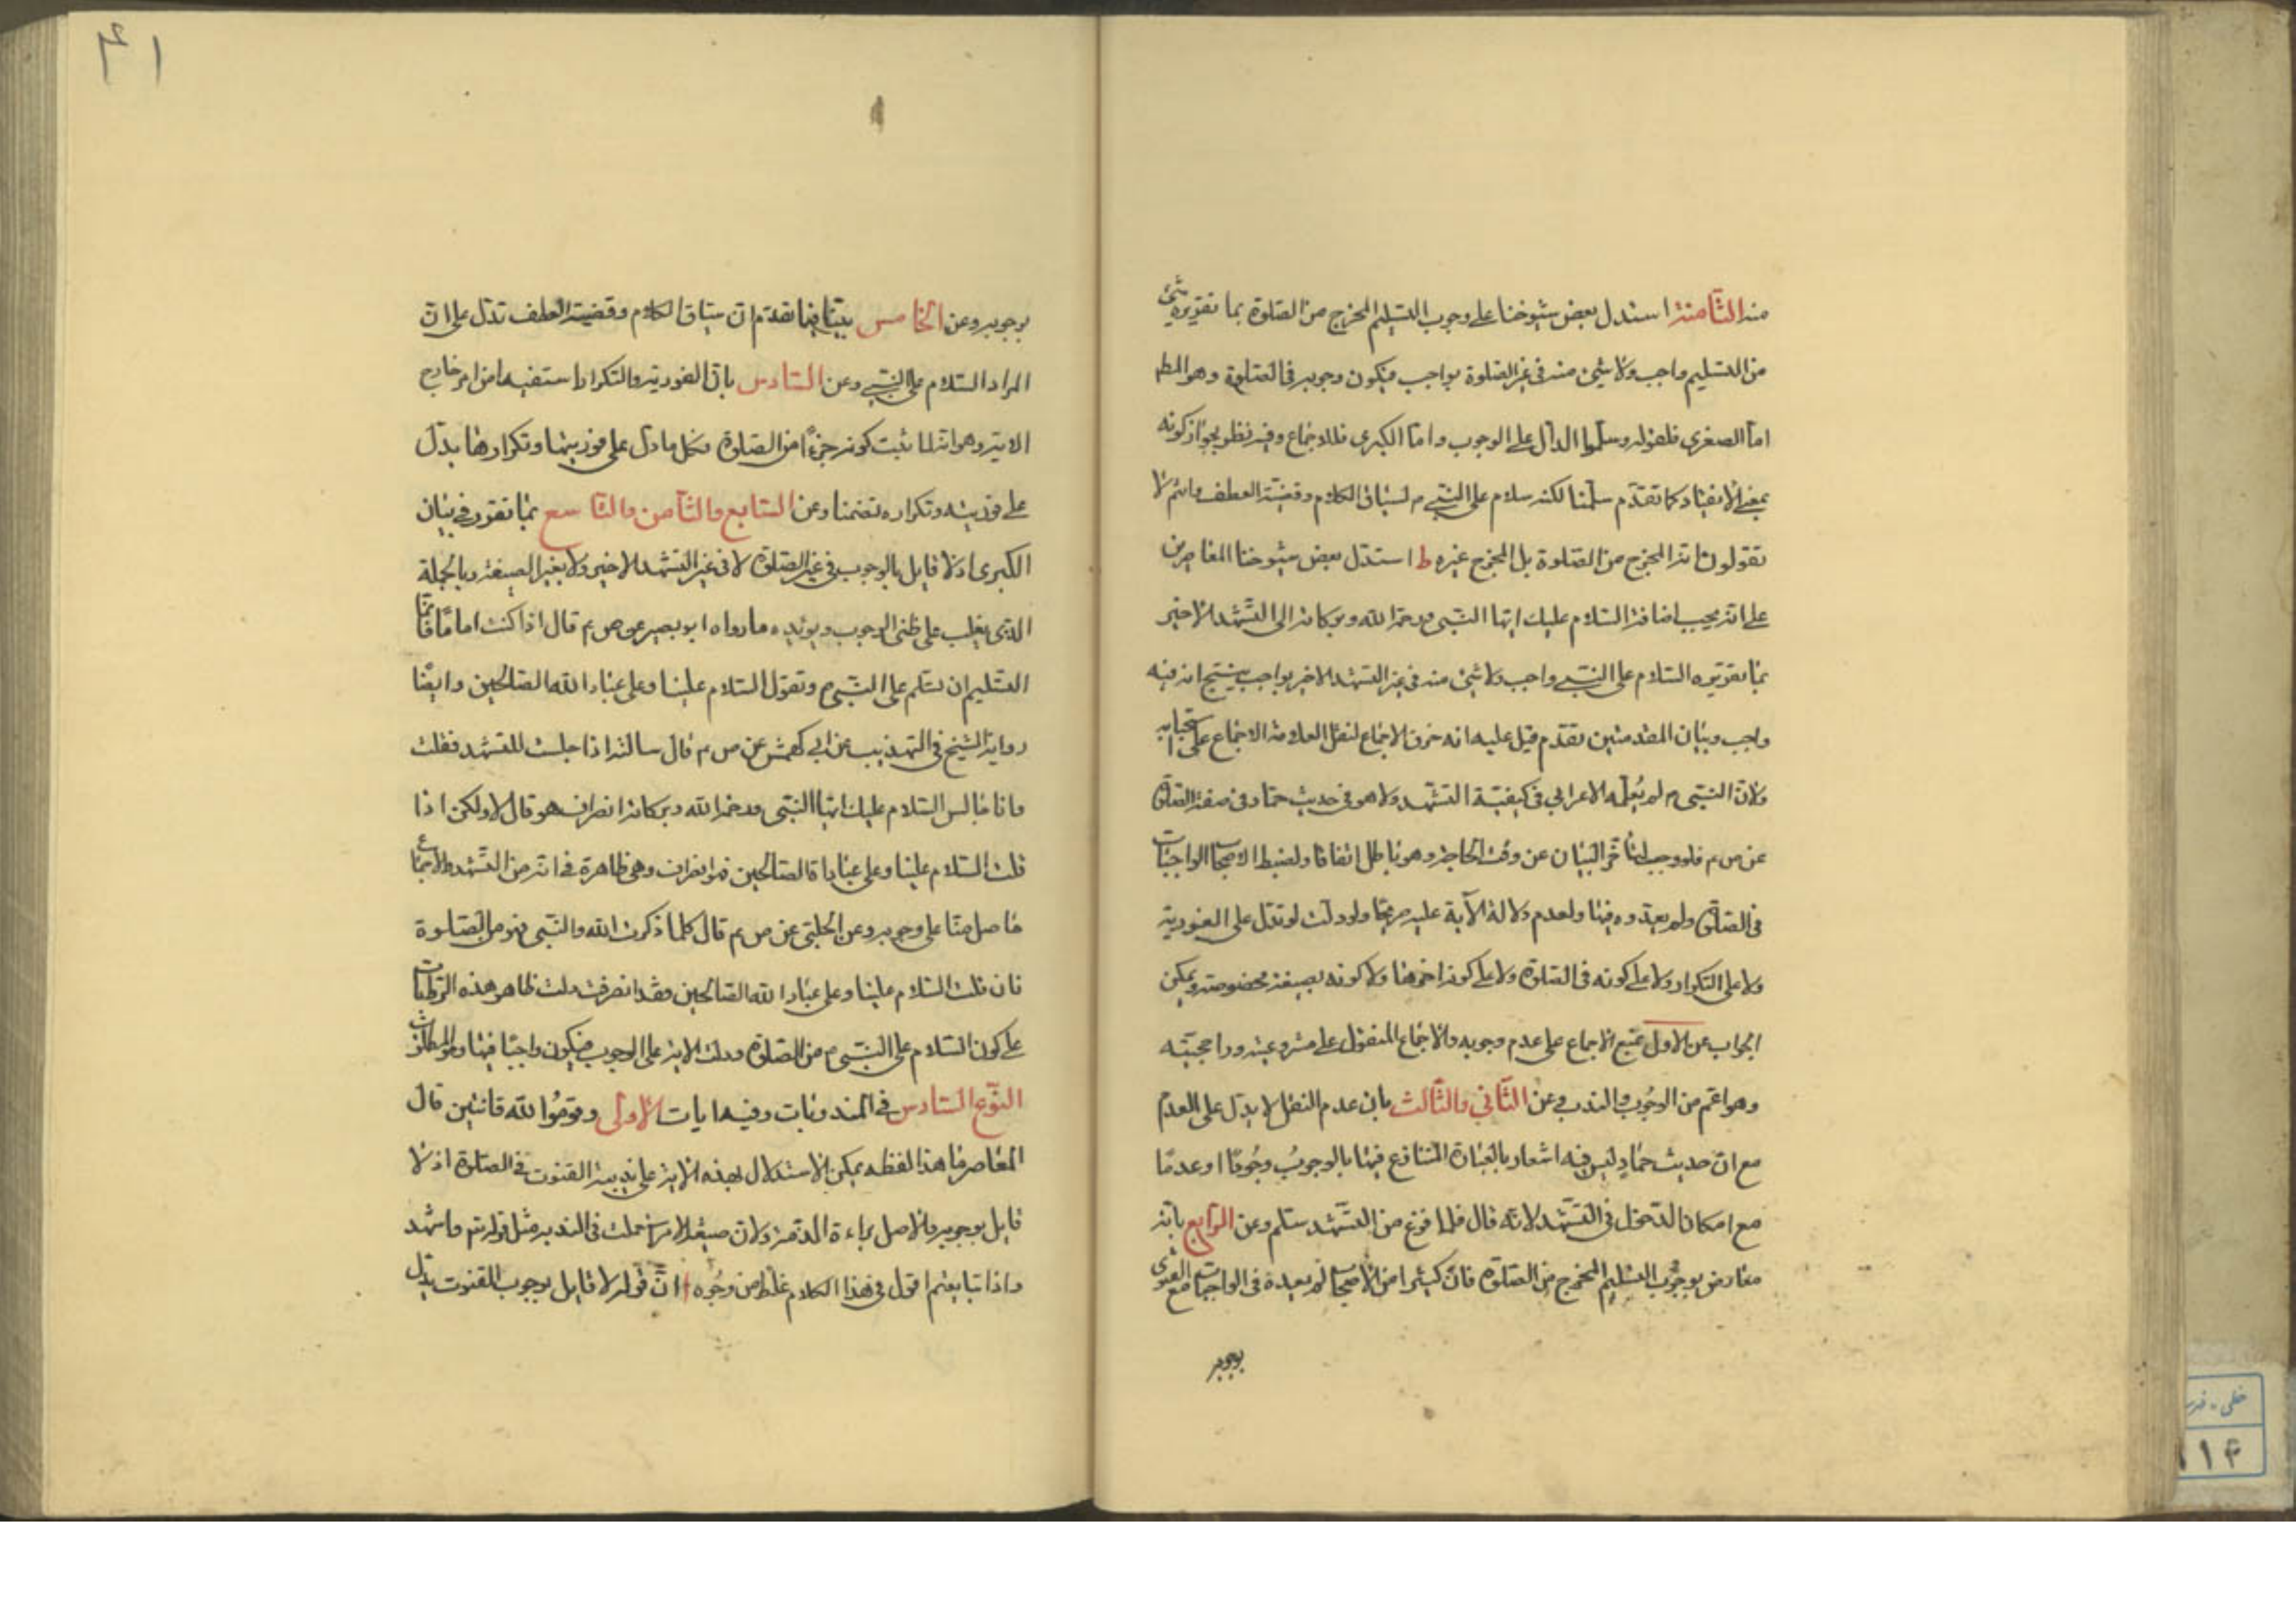 منه الثامنة استدل بعض شيوخنا على وجوب التسليم المخرج من الصلوة بما تقريره شئ
من التسليم واجب ولا شيئ منه في غير الصلوة بواجب فيكون وجوبه في الصلوة وهو المط
اما الصغرى فلقوله وسلموا الدال على الوجوب واما الكبرى فللاجماع وفيه نظر لجواز كونه
بمعنى الانقياد كما تقدم سلمنا لكنه سلام على النبي م لسياق الكلام وقضية العطف وانتم لا
تقولون انه المخرج من الصلوة بل المخرج غيره ط استدل بعض شيوخنا المعاصرين
على انه يجب اضافة السلام عليك ايها النبي ورحمة الله وبركاته الى التشهد الاخير
بما تقريره السلام على النبي واجب ولا شئ منه في غير التشهد الاخير بواجب ينتج انه فيه
واجب وبيان المقدمتين تقدم قيل عليه انه خرق الاجماع لنقل العلامة الاجماع على استحبابه
ولان النبي م لم يعلمه الاعرابي في كيفية التشهد ولا هو في حديث حماد في صفة الصلوة
عن ص م فلو وجب لتاخر البيان عن وقت الحاجة وهو باطل اتفاقا ولضبط الاصحاب الواجبات
في الصلوة ولم يعدوه فيها ولعدم دلالة الآية عليه صريحا ولو دلت لم تدل على الفورية
ولا على التكرار ولا على كونه في الصلوة ولا على كونه اخرها ولا كونه بصيغة مخصوصة ويمكن
الجواب عن الاول بمنع الاجماع على عدم وجوبه والاجماع المنقول على مشروعيته وراجحيته
وهو اعم من الوجوب والندب وعن الثاني والثالث بان عدم النقل لا يدل على العدم
مع ان حديث حماد ليس فيه اشعار بالعبارة المتنازع فيها بالوجوب وجوبا او عدما
مع امكان الدخول في التشهد لانه قال فلما فرغ من التشهد سلم وعن الرابع بانه
معارض بوجوب التسليم المخرج من الصلوة فان كثيرا من الاصحاب لم يعده في الواجبات مع الفتوى
بوجوبه
۴۱
بوجوبه وعن الخامس بيّنا فيما تقدم ان سياق الكلام وقضية العطف تدل على ان
المراد السلام على النبي وعن السادس بان الفورية والتكرار استفيدا من امر خارج
الاية وهو انه لما ثبت كونه جزءا من الصلوة فكل ما دل على فوريتها وتكرارها يدل
على فوريته وتكراره تضمنا وعن السابع والثامن والتاسع بما تقرر في بيان
الكبرى اذ لا قايل بالوجوب في غير الصلوة لا في غير التشهد الاخير ولا بغير الصيغة وبالجملة
الذي يغلب على ظني الوجوب ويؤيده ما رواه ابو بصير عن ص م قال اذا كنت اماما فانما
التسليم ان تسلم على النبي م وتقول السلام علينا وعلى عباد الله الصالحين وايضا
رواية الشيخ في التهذيب عن ابي كهمش عن ص م قال سالته اذا جلست للتشهد فقلت
وانا جالس السلام عليك ايها النبي ورحمة الله وبركاته انصراف هو قال لا ولكن اذا
قلت السلام علينا وعلى عباد الله الصالحين فهو انصراف وهي ظاهرة في انه من التشهد والاجماع
حاصل منا على وجوبه وعن الحلبي عن ص م قال كلما ذكرت الله والنبي فهو من الصلوة
فان قلت السلام علينا وعلى عباد الله الصالحين فقد انصرفت دلت ظاهر هذه الروايات
على كون السلام على النبي م من الصلوة ودلت الاية على الوجوب فيكون واجبا فيها وهو المطلوب
النوع السادس في المندوبات وفيه ايات الاولى وقوموا لله قانتين قال
المعاصر ما هذا لفظه يمكن الاستدلال بهذه الاية على ندبية القنوت في الصلوة اذ لا
قايل بوجوبه والاصل براءة الذمة ولان صيغة الامر استعملت في الندب مثل قوله تم واشهد
واذا تبايعتم اقول في هذا الكلام غلط من وجوه ا ان قوله لا قايل بوجوب القنوت يدل